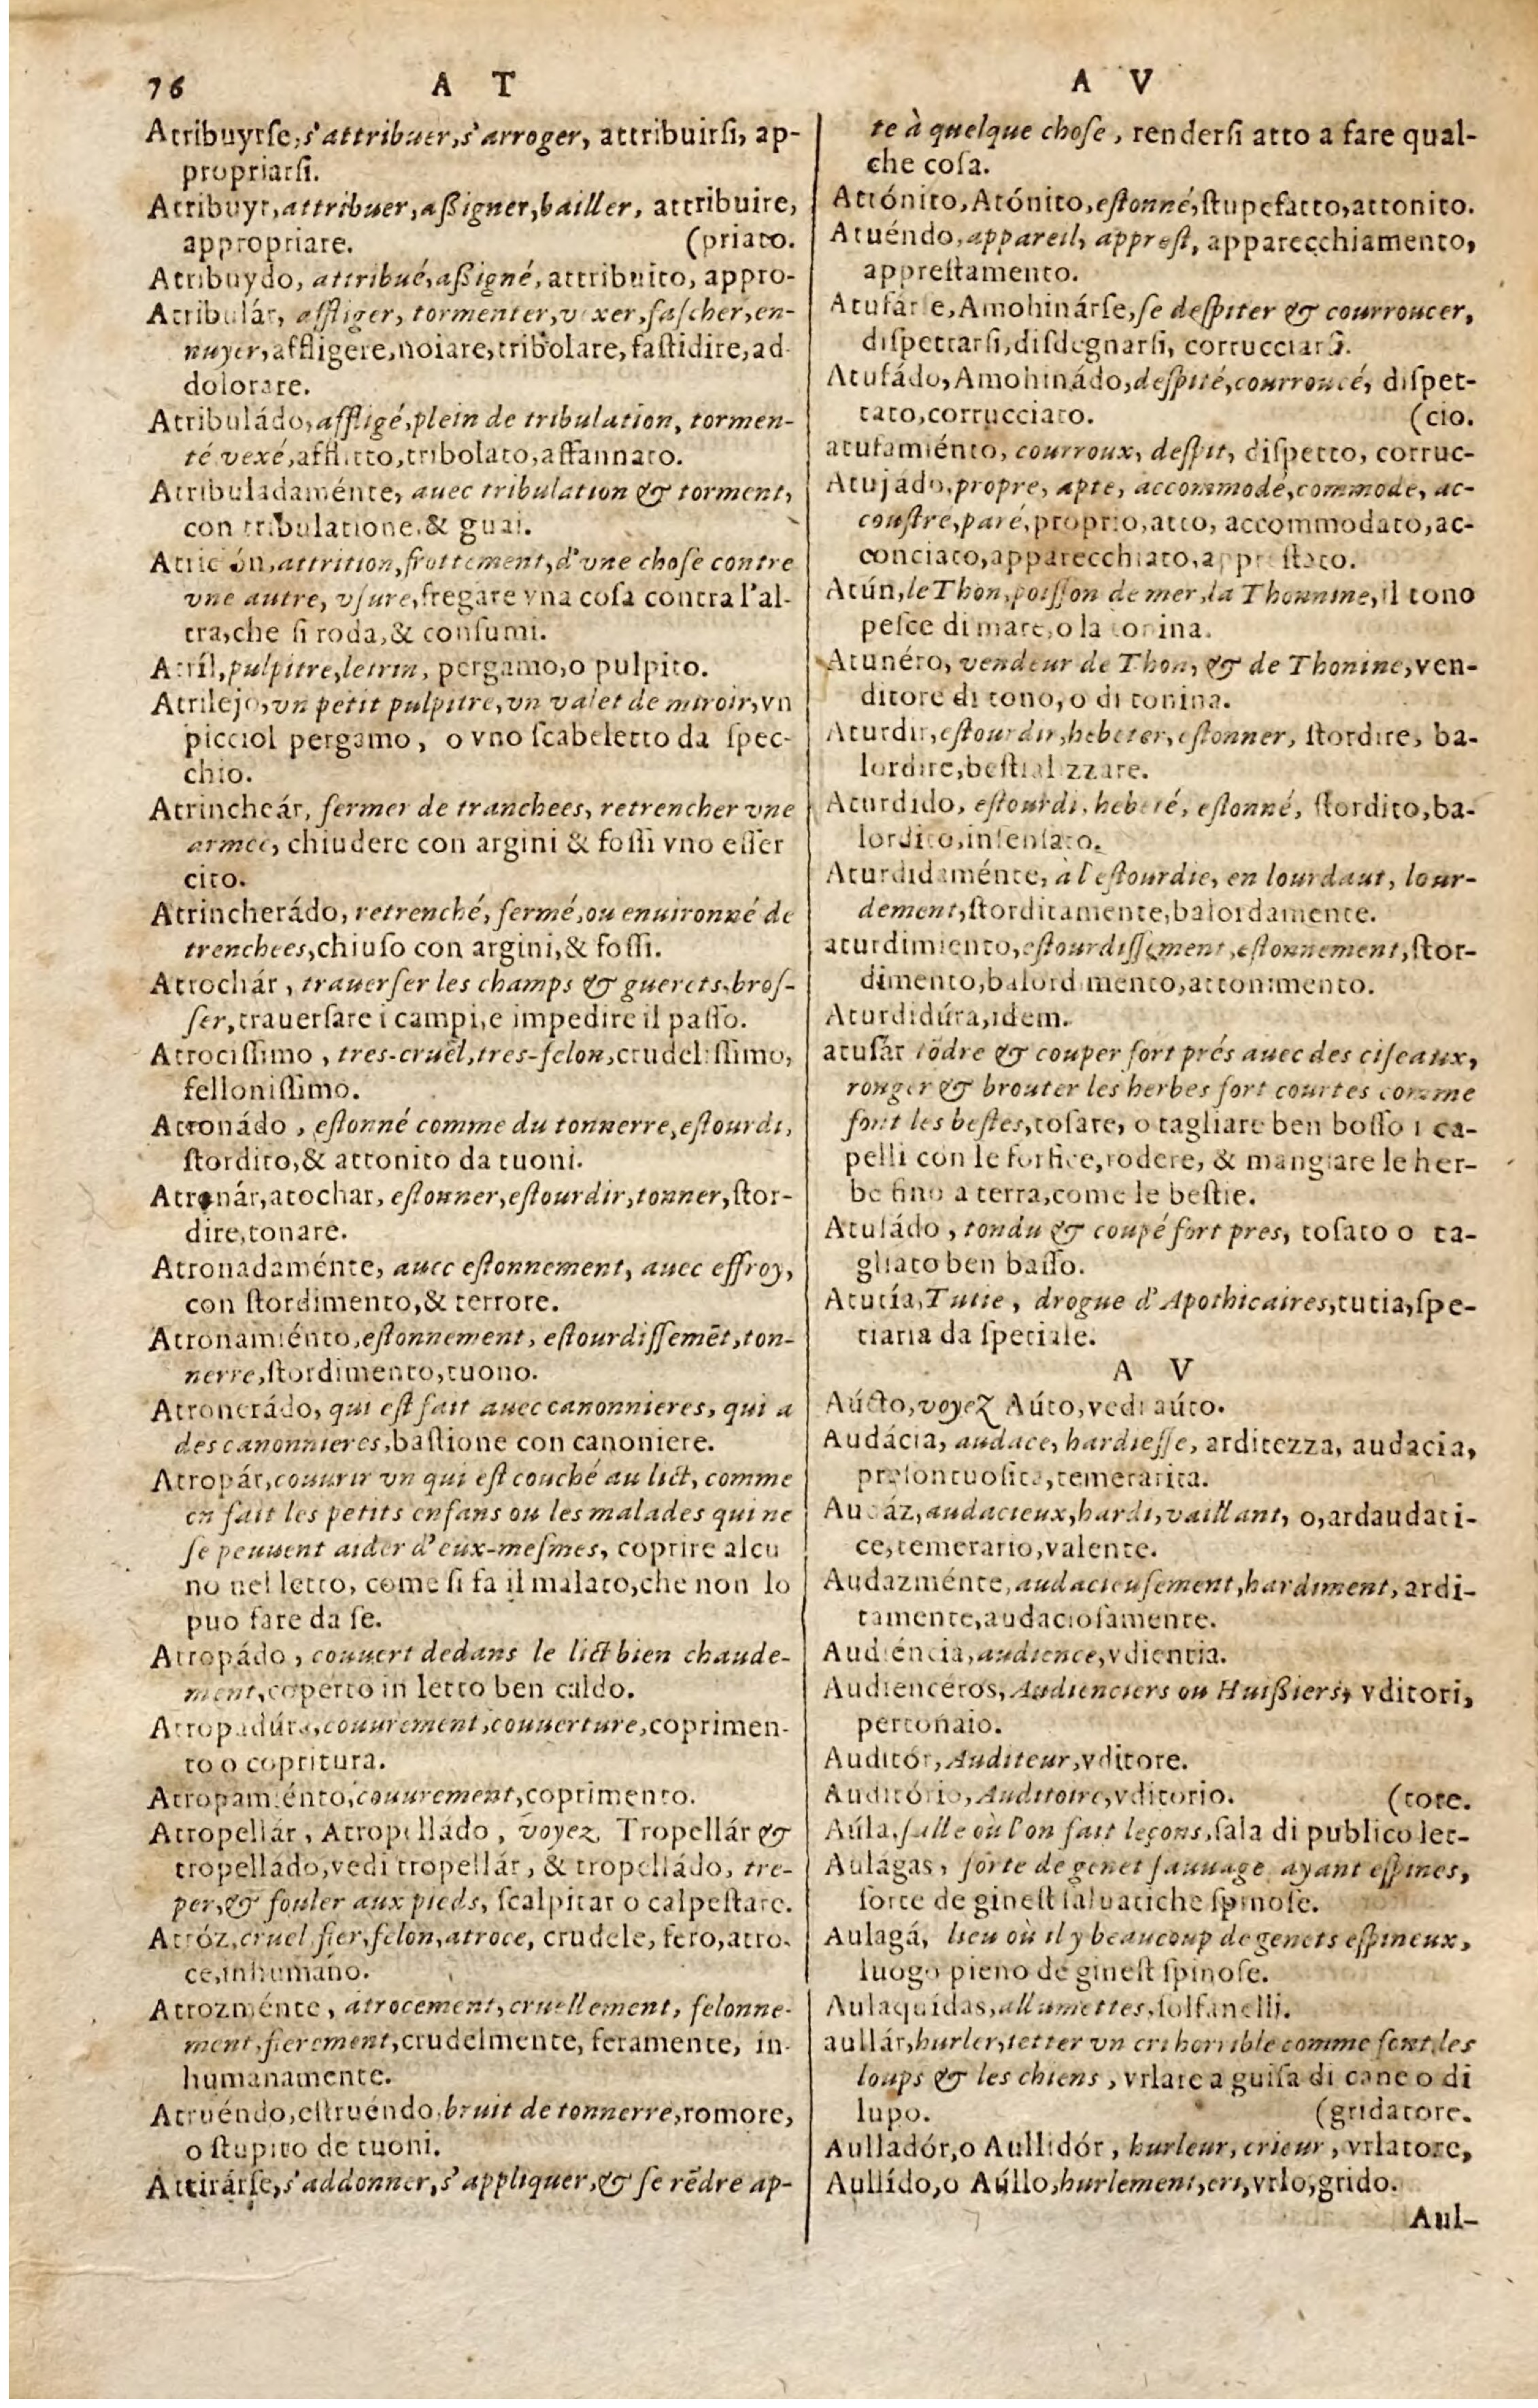 76 A T A V
Atribuyrse, s'attribuer, s'arroger, attribuirsi, ap-
propriarsi.
Atribuyr, attribuer, aßigner, bailler, attribuire,
appropriare. (priato.
Atribuydo, attribué, aßigné, attribuito, appro-
Atribulár, affliger, tormenter, vexer, fascher, en-
nuyer, affligere, noiare, tribolare, fastidire, ad
dolorare.
Atribuládo, affligé, plein de tribulation, tormen-
té vexé, afflitto, tribolato, affannato.
Atribuladaménte, auec tribulation & torment,
con tribulatione, & guai.
Atrición, attrition, frottement, d'vne chose contre
vne autre, vsure, fregare vna cosa contra l'al-
tra, che si roda, & consumi.
Atríl, pulpitre, letrin, pergamo, o pulpito.
Atrilejo, vn petit pulpitre, vn valet de miroir, vn
picciol pergamo, o vno scabeletto da spec-
chio.
Atrincheár, fermer de tranchees, retrencher vne
armee, chiudere con argini & fossi vno esser
cito.
Atrincherádo, retrenché, fermé, ou enuironné de
trenchees, chiuso con argini, & fossi.
Atrochár, trauerser les champs & guerets, bros-
ser, trauersare i campi, e impedire il passo.
Atrocissimo, tres-cruel, tres-felon, crudelissimo,
fellonissimo.
Atronádo, estonné comme du tonnerre, estourdi,
stordito, & attonito da tuoni.
Atronár, atochar, estonner, estourdir, tonner, stor-
dire, tonare.
Atronadaménte, auec estonnement, auec effroy,
con stordimento, & terrore.
Atronamiénto, estonnement, estourdissemẽt, ton-
nerre, stordimento, tuono.
Atronerádo, qui est fait auec canonnieres, qui a
des canonnieres, bastione con canoniere.
Atropár, couurir vn qui est couché au lict, comme
en fait les petits enfans ou les malades qui ne
se peuuent aider d'eux-mesmes, coprire alcu
no nel letto, come si fa il malato, che non lo
puo fare da se.
Atropádo, couuert dedans le lict bien chaude-
ment, coperto in letto ben caldo.
Atropadúra, couurement, couuerture, coprimen-
to o copritura.
Atropamiénto, couurement, coprimento.
Atropellár, Atropelládo, voyez Tropellár &
tropelládo, vedi tropellár, & tropelládo, tre-
per, & fouler aux pieds, scalpitar o calpestare.
Atróz, cruel, fier, felon, atroce, crudele, fero, atro-
ce, inhumano.
Atrozménte, atrocement, cruellement, felonne-
ment, fierement, crudelmente, feramente, in-
humanamente.
Atruéndo, estruéndo, bruit de tonnerre, romore,
o stupito de tuoni.
Attirárse, s'addonner, s'appliquer, & se rẽdre ap-
te à quelque chose, rendersi atto a fare qual-
che cosa.
Attónito, Atónito, estonné, stupefatto, attonito.
Atuéndo, appareil, apprest, apparecchiamento,
apprestamento.
Atufárse, Amohinárse, se despiter & courroucer,
dispettarsi, disdegnarsi, corrucciarsi.
Atufádo, Amohinádo, despité, courroucé, dispet-
tato, corrucciato. (cio.
atufamiénto, courroux, despit, dispetto, corruc-
Atujádo, propre, apte, accommodé, commode, ac-
coustré, paré, proprio, atto, accommodato, ac-
conciato, apparecchiato, apprestato.
Atún, le Thon, poisson de mer, la Thonnine, il tono
pesce di mare, o la tonina.
Atunéro, vendeur de Thon, & de Thonine, ven-
ditore di tono, o di tonina.
Aturdir, estourdir, hebeter, estonner, stordire, ba-
lordire, bestializzare.
Aturdido, estourdi, hebeté, estonné, stordito, ba-
lordito, insensato.
Aturdidaménte, à l'estourdie, en lourdaut, lour-
dement, storditamente, balordamente.
aturdimiento, estourdissement, estonnement, stor-
dimento, balordimento, attonimento.
Aturdidúra, idem.
atusár tõdre & couper fort prés auec des ciseaux,
ronger & brouter les herbes fort courtes comme
font les bestes, tosare, o tagliare ben bosso i ca-
pelli con le forfice, rodere, & mangiare le her-
be fino a terra, come le bestie.
Atusádo, tondu & coupé fort pres, tosato o ta-
gliato ben basso.
Atutía, Tutie, drogue d'Apothicaires, tutia, spe-
tiaria da speciale.
A V
Aúcto, voyez Aúto, vedi aúto.
Audácia, audace, hardiesse, arditezza, audacia,
presontuosita, temerarita.
Audáz, audacieux, hardi, vaillant, o, ardaudati-
ce, temerario, valente.
Audazménte, audacieusement, hardiment, ardi-
tamente, audaciosamente.
Audiéncia, audience, vdientia.
Audiencéros, Audienciers ou Huißiers, vditori,
portonaio.
Auditór, Auditeur, vditore.
Auditório, Auditoire, vditorio. (tore.
Aúla, salle où l'on fait leçons, sala di publico let-
Aulagas, sorte de genet sauuage ayant espines,
sorte de ginest saluatiche spinose.
Aulagá, lieu où il y beaucoup de genets espineux,
luogo pieno de ginest spinose.
Aulaquídas, allumettes, solfanelli.
aullár, hurler, ietter vn cri horrible comme font les
loups & les chiens, vrlare a guisa di cane o di
lupo. (gridatore.
Aulladór, o Aullidór, hurleur, crieur, vrlatore,
Aullído, o Aúllo, hurlement, cri, vrlo, grido.
Aul-